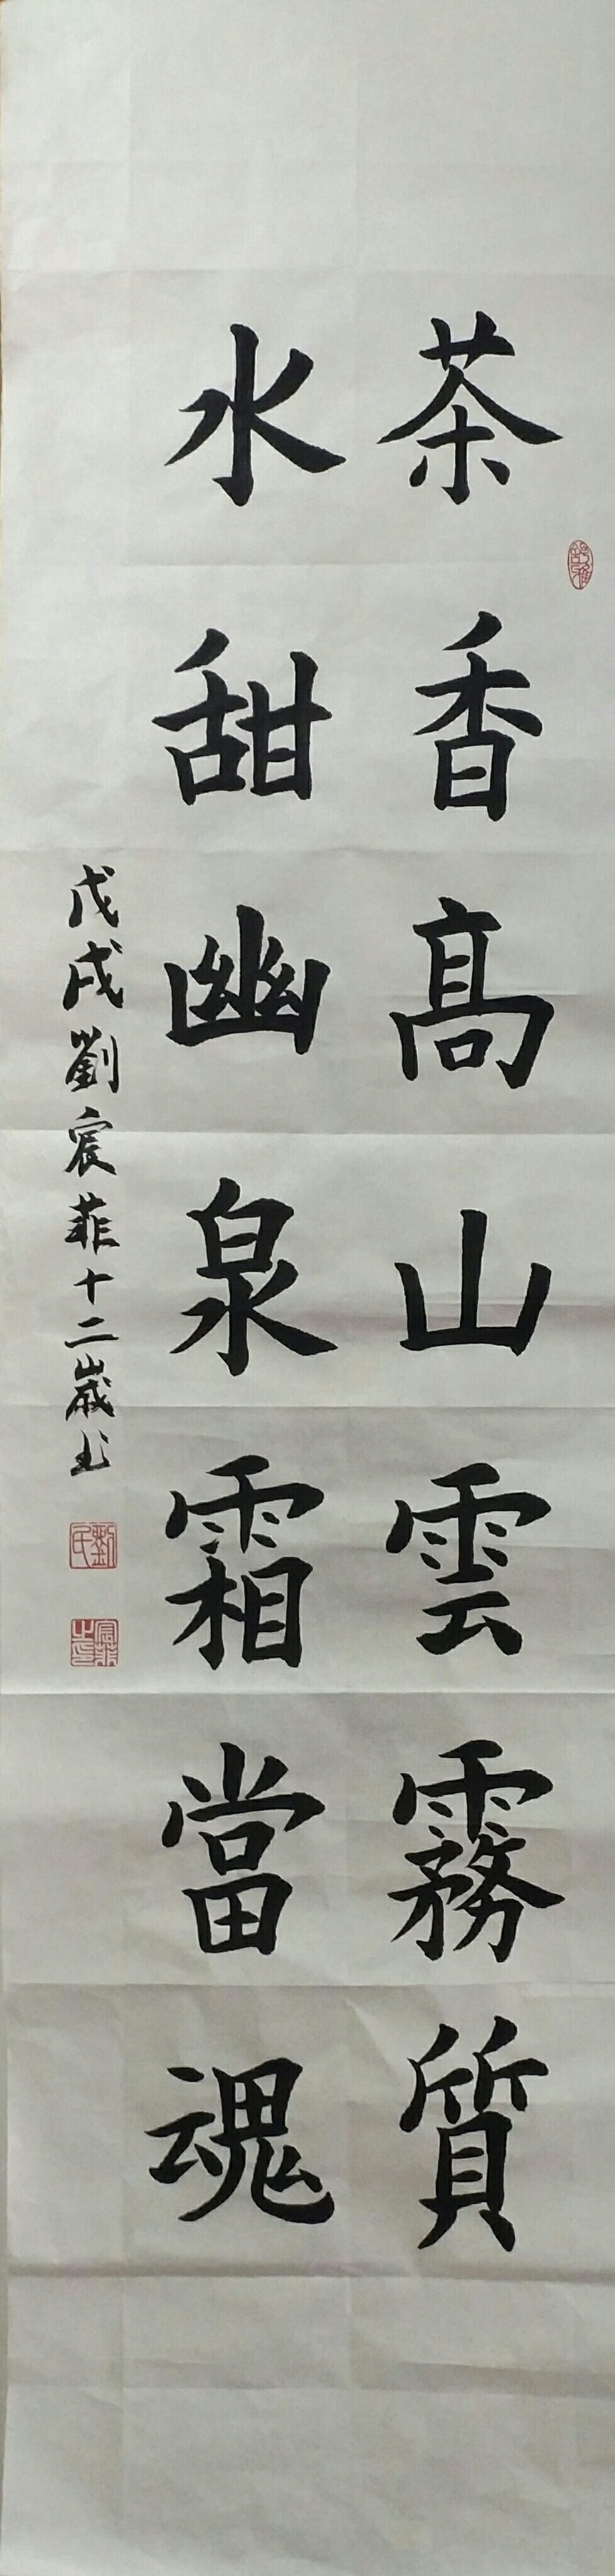 茶香髙山雲霧質
水甜幽泉霜當魂
戊戌劉宸菲十二歲书
劉氏
宸菲之印